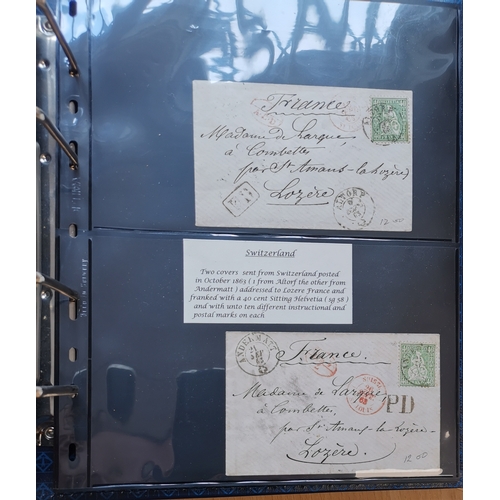 France
Madame de Larque
à Combettes
par St Amans-la-Lozère
Lozère
ALTORF
12.00
Switzerland
Two covers sent from Switzerland posted
in October 1863 ( 1 from Altorf the other from
Andermatt ) addressed to Lozere France and
franked with a 40 cent Sitting Helvetia ( sg 58 )
and with unto ten different instructional and
postal marks on each
ANDERMATT
France.
Madame de Larque
à Combettes,
PD
par St Amans-la-Lozère-
Lozère
12.00